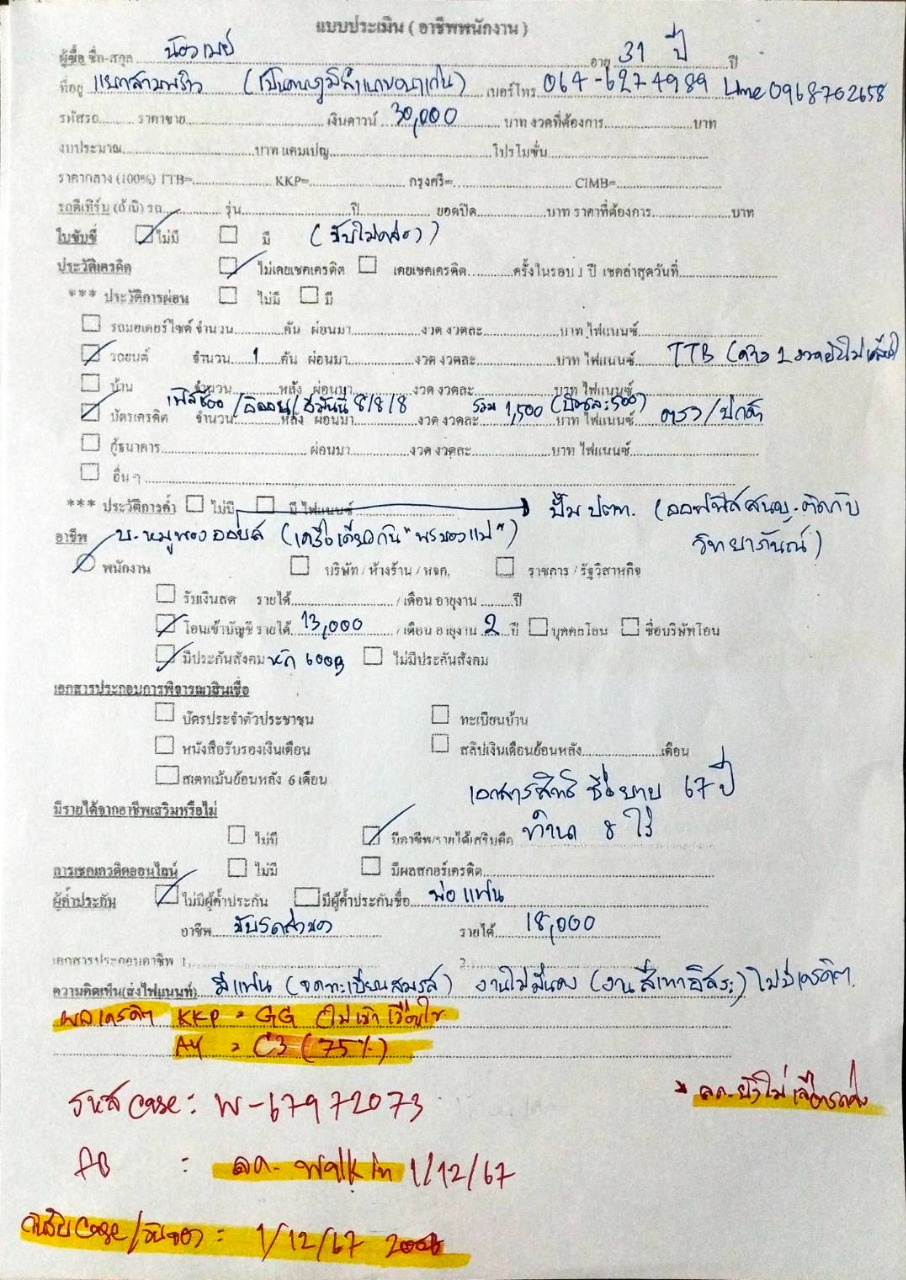 แบบประเมิน ( อาชีพพนักงาน )
ผู้ซื้อ ชื่อ-สกุล น้องเมย์ อายุ 31 ปี ปี
ที่อยู่ แยกสามพร้าว (เป็นคนภูมิลำเนาขอนแก่น) เบอร์โทร 064-6274989 Line 0968702658
รหัสรถ ราคาขาย เงินดาวน์ 30,000 บาท งวดที่ต้องการ บาท
งบประมาณ บาท แคมเปญ โปรโมชั่น
ราคากลาง (100%) TTB= KKP= กรุงศรี= CIMB=
รถตีเทิร์น (ถ้ามี) รถ รุ่น ปี ยอดปิด บาท ราคาที่ต้องการ บาท
ใบขับขี่ ไม่มี มี (ขับไม่คล่อง)
ประวัติเครดิต ไม่เคยเชคเครดิต เคยเชคเครดิต ครั้งในรอบ 1 ปี เชคล่าสุดวันที่
*** ประวัติการผ่อน ไม่มี มี
รถมอเตอร์ไซค์ จำนวน คัน ผ่อนมา งวด งวดละ บาท ไฟแนนซ์
รถยนต์ จำนวน 1 คัน ผ่อนมา งวด งวดละ บาท ไฟแนนซ์ TTB (ค้าง 1 งวดยังไม่
บ้าน จำนวน หลัง ผ่อนมา งวด งวดละ บาท ไฟแนนซ์
เฟิสช้อย/อิออน/ 8/8/8 รวม 1,500 (ใบละ 500)
บัตรเครดิต จำนวน หลัง ผ่อนมา งวด งวดละ บาท ไฟแนนซ์ ตรง/ปกติ
กู้ธนาคาร ผ่อนมา งวด งวดละ บาท ไฟแนนซ์
อื่น ๆ
*** ประวัติการค้ำ ไม่มี มี ไฟแนนซ์ ปั๊ม ปตท. (ออฟฟิสสนญ.ติดกับ
อาชีพ บ.หมูทองออยล์ (เครือเดียวกัน "พรของแม่") วิทยาภัณฑ์)
พนักงาน บริษัท / ห้างร้าน / หจก. ราชการ / รัฐวิสาหกิจ
รับเงินสด รายได้ / เดือน อายุงาน ปี
โอนเข้าบัญชี รายได้ 13,000 / เดือน อายุงาน 2 ปี บุคคลโอน ชื่อบริษัทโอน
มีประกันสังคม หัก 600฿ ไม่มีประกันสังคม
เอกสารประกอบการพิจารณาสินเชื่อ
บัตรประจำตัวประชาชน ทะเบียนบ้าน
หนังสือรับรองเงินเดือน สลิปเงินเดือนย้อนหลัง เดือน
สเตทเม้นย้อนหลัง 6 เดือน
เอกสารสิทธิ์ ชื่อยาย 67 ปี
มีรายได้จากอาชีพเสริมหรือไม่
ไม่มี มีอาชีพ/รายได้เสริมคือ ทำนา 8 ไร่
การเชคเครดิตออนไลน์ ไม่มี มีผลสกอร์เครดิต
ผู้ค้ำประกัน ไม่มีผู้ค้ำประกัน มีผู้ค้ำประกันชื่อ พ่อแฟน
อาชีพ ขับรถส่งของ รายได้ 18,000
เอกสารประกอบอาชีพ 1. 2.
ความคิดเห็น(ส่งไฟแนนท์) มีแฟน (จดทะเบียนสมรส) งานไม่มั่นคง (งานสีเทาอิสระ) ไม่มีเครดิตฯ
ผลเครดิต KKP = GG ไม่เข้าเงื่อนไข
AY = C3 (75%)
รหัส case : W-67972073
ลค.ยังไม่เลือกรถ
AB : ลค. walk in 1/12/67
วันรับ case/วันจอง : 1/12/67